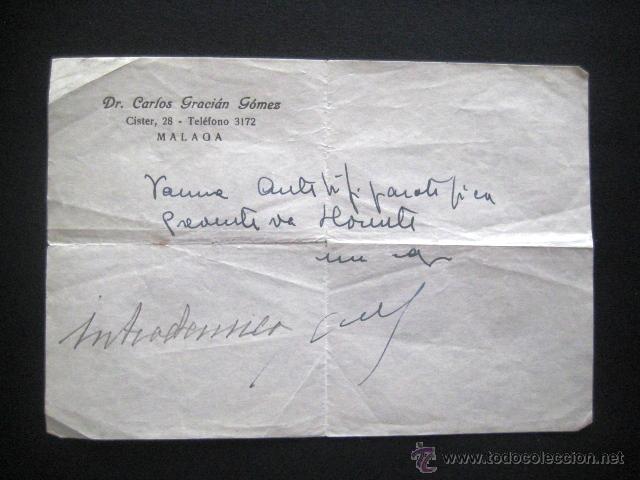 Dr. Carlos Gracián Gómez
Cister, 28 - Teléfono 3172
MALAGA
Vacuna Antitifi paratifica
preventiva Llorente
una cj
intradermica
www.todocoleccion.net